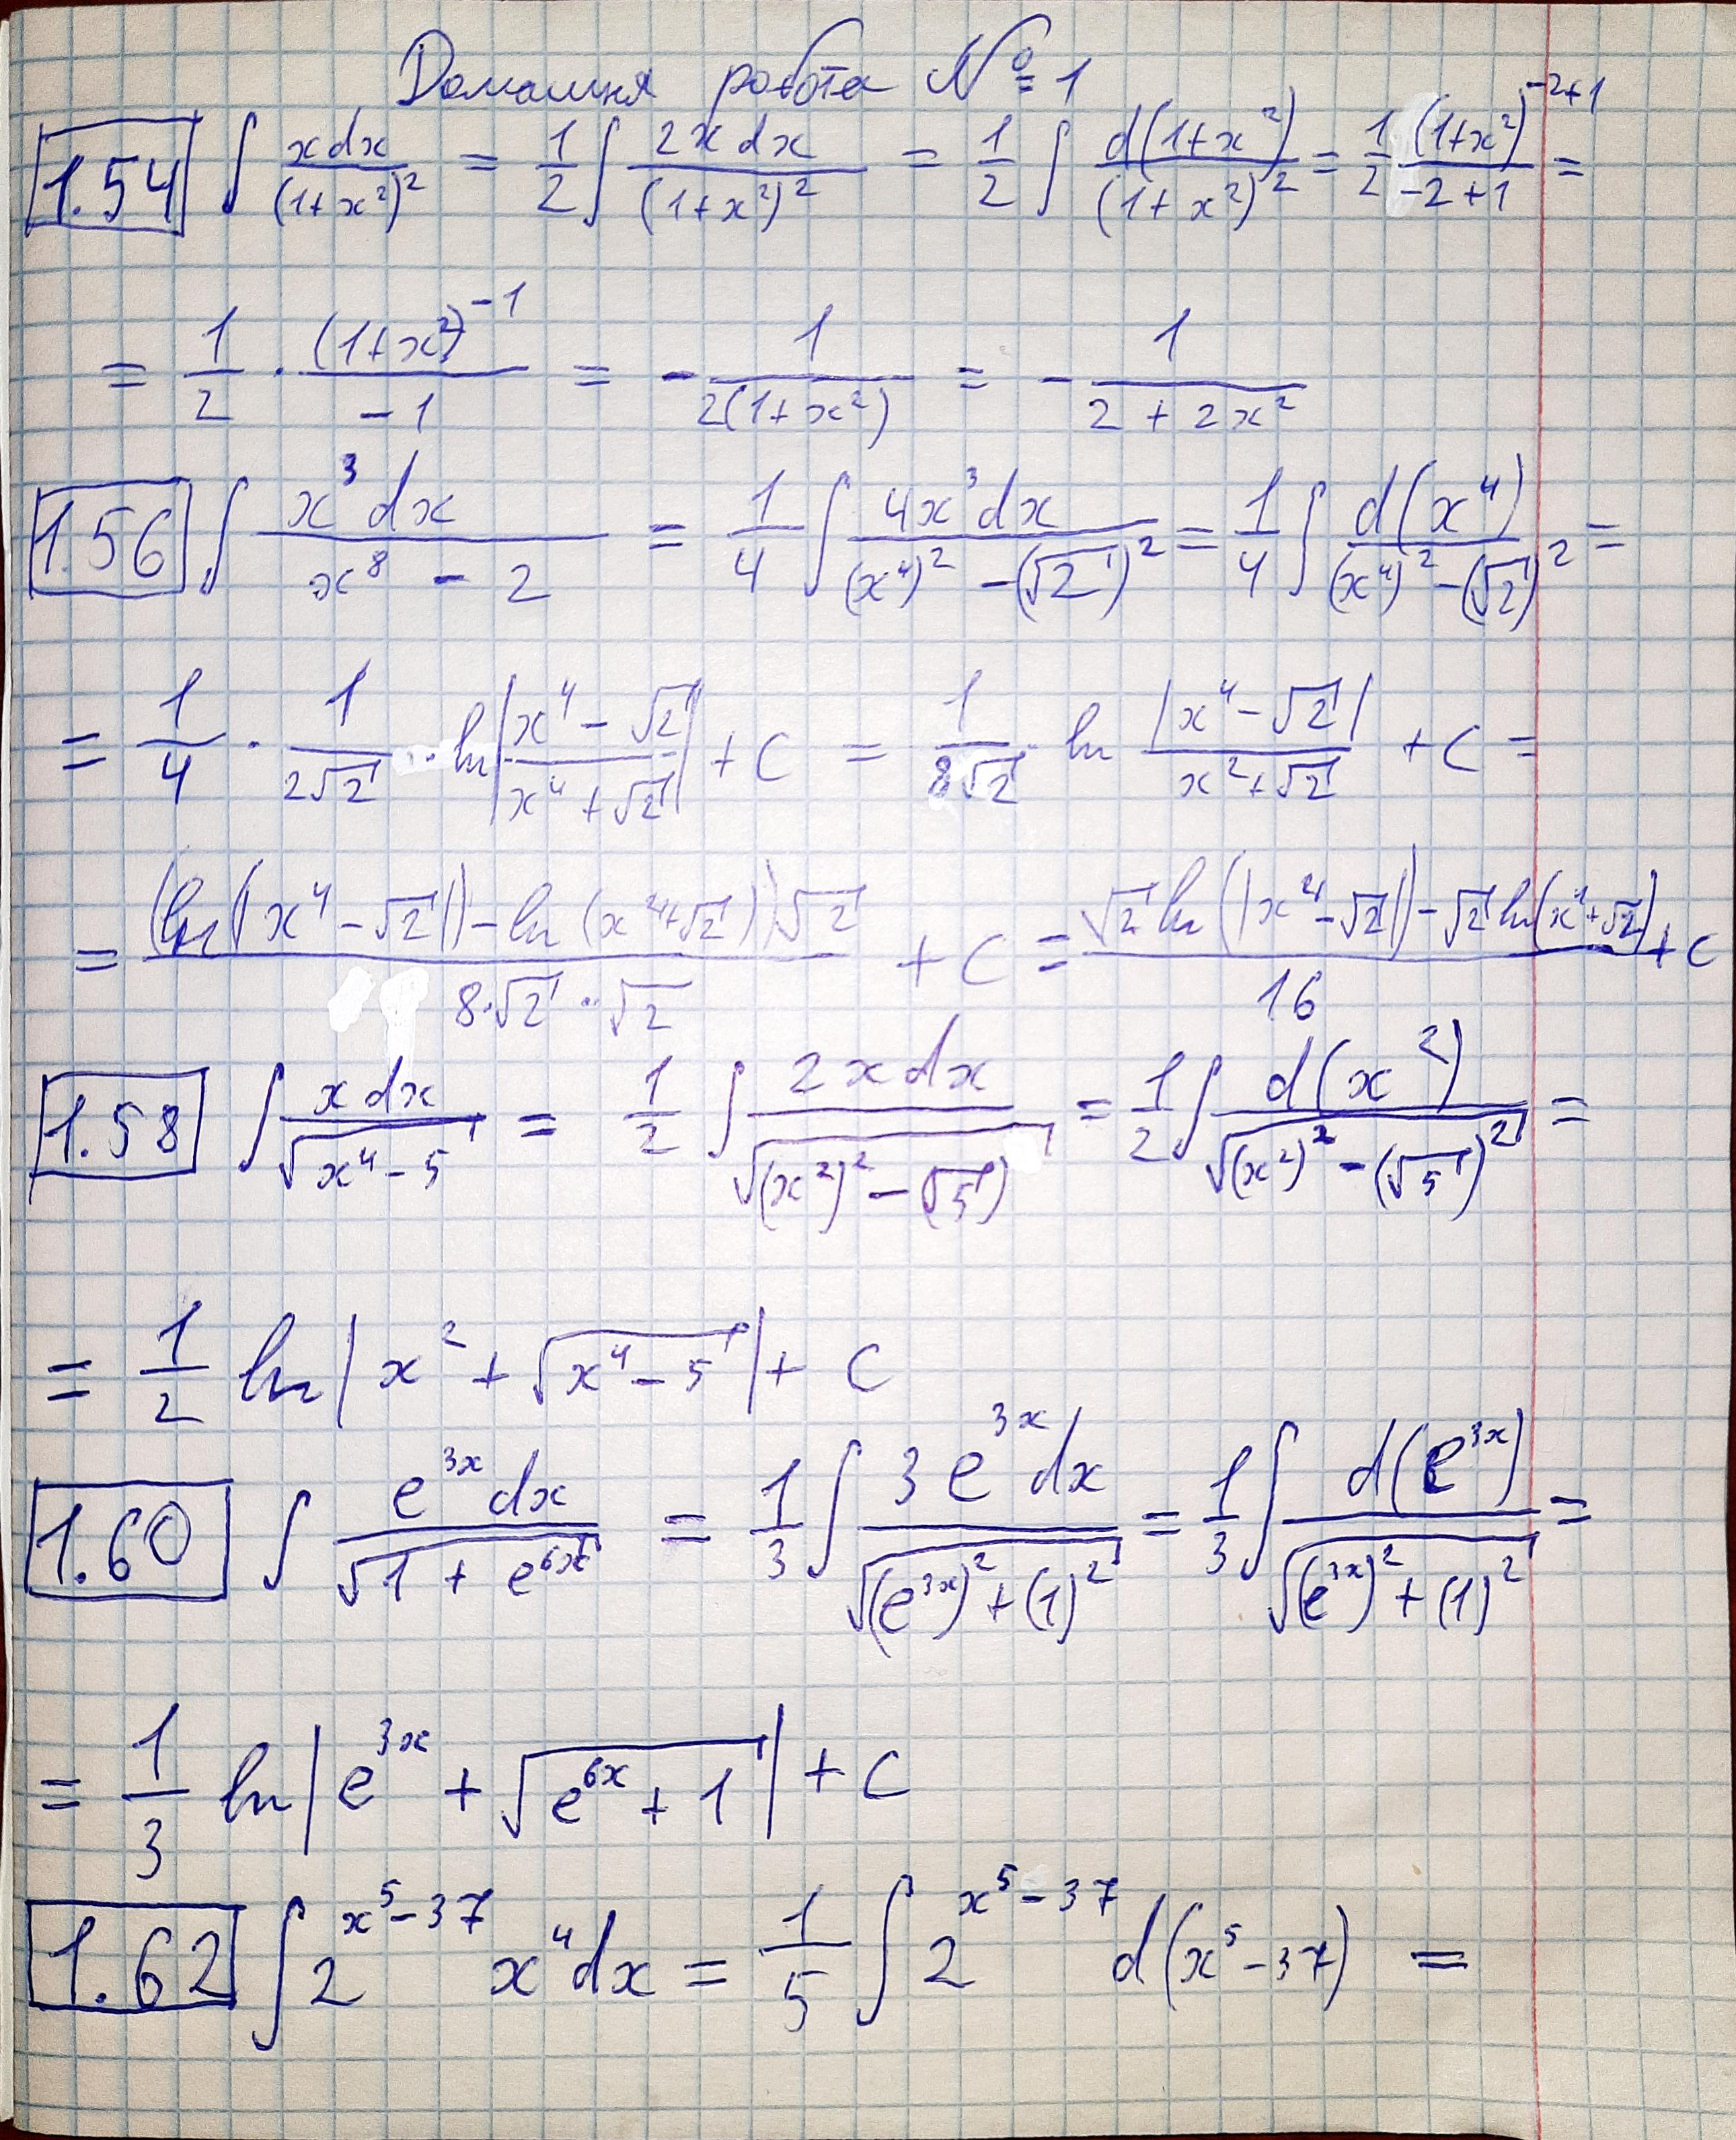 Домашня робота № 1
1.54 ∫ x dx / (1+x²)² = 1/2 ∫ 2x dx / (1+x²)² = 1/2 ∫ d(1+x²) / (1+x²)² = 1/2 (1+x²)^(-2+1) / (-2+1) =
= 1/2 · (1+x²)^(-1) / (-1) = - 1 / 2(1+x²) = - 1 / (2 + 2x²)
1.56 ∫ x³ dx / (x⁸ - 2) = 1/4 ∫ 4x³ dx / ((x⁴)² - (√2)²) = 1/4 ∫ d(x⁴) / ((x⁴)² - (√2)²) =
= 1/4 · 1/(2√2) · ln |(x⁴ - √2) / (x⁴ + √2)| + C = 1/(8√2) · ln |x⁴ - √2| / (x² + √2) + C =
= (ln(|x⁴ - √2|) - ln(x⁴ + √2))√2 / (8·√2 · √2) + C = (√2 ln(|x⁴ - √2|) - √2 ln(x⁴ + √2)) / 16 + C
1.58 ∫ x dx / √(x⁴ - 5) = 1/2 ∫ 2x dx / √((x²)² - (√5)) = 1/2 ∫ d(x²) / √((x²)² - (√5)²) =
= 1/2 ln |x² + √(x⁴ - 5)| + C
1.60 ∫ e^(3x) dx / √(1 + e^(6x)) = 1/3 ∫ 3e^(3x) dx / √((e^(3x))² + (1)²) = 1/3 ∫ d(e^(3x)) / √((e^(3x))² + (1)²) =
= 1/3 ln |e^(3x) + √(e^(6x) + 1)| + C
1.62 ∫ 2^(x⁵-37) x⁴ dx = 1/5 ∫ 2^(x⁵-37) d(x⁵ - 37) =